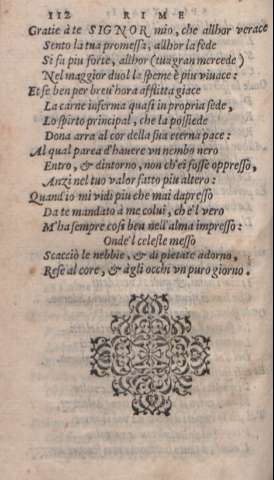 112 RIME
Gratie à te SIGNOR mio, che allhor verace
Sento la tua promessa, allhor la fede
Si fa piu forte, allhor (tua gran mercede)
Nel maggior duol la speme è piu viuace:
Et se ben per breu'hora afflitta giace
La carne inferma quasi in propria sede,
Lo spirto principal, che la possiede
Dona arra al cor della sua eterna pace:
Al qual parea d'hauere vn nembo nero
Entro, & dintorno, non ch'ei fosse oppresso,
Anzi nel tuo valor fatto piu altero:
Quand'io mi vidi piu che mai dapresso
Da te mandato à me colui, ch'è'l vero
M'ha sempre cosi ben nell'alma impresso:
Onde'l celeste messo
Scacciò le nebbie, & di pietate adorno,
Rese al core, & àgli occhi vn puro giorno.